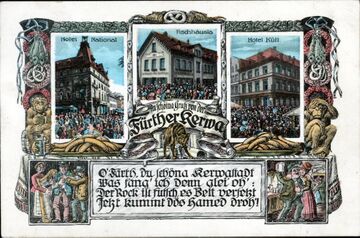 Hotel National
Fischhäusla
Hotel Kütt
An schöna Gruß von der
Fürther Kerwa
O' Fürth, du schöna Kerwastadt
Was fang' ich denn glei oh':
Der Rock ist futsch, es Bett versetzt
Jetzt kummt dös Hamed droh'!